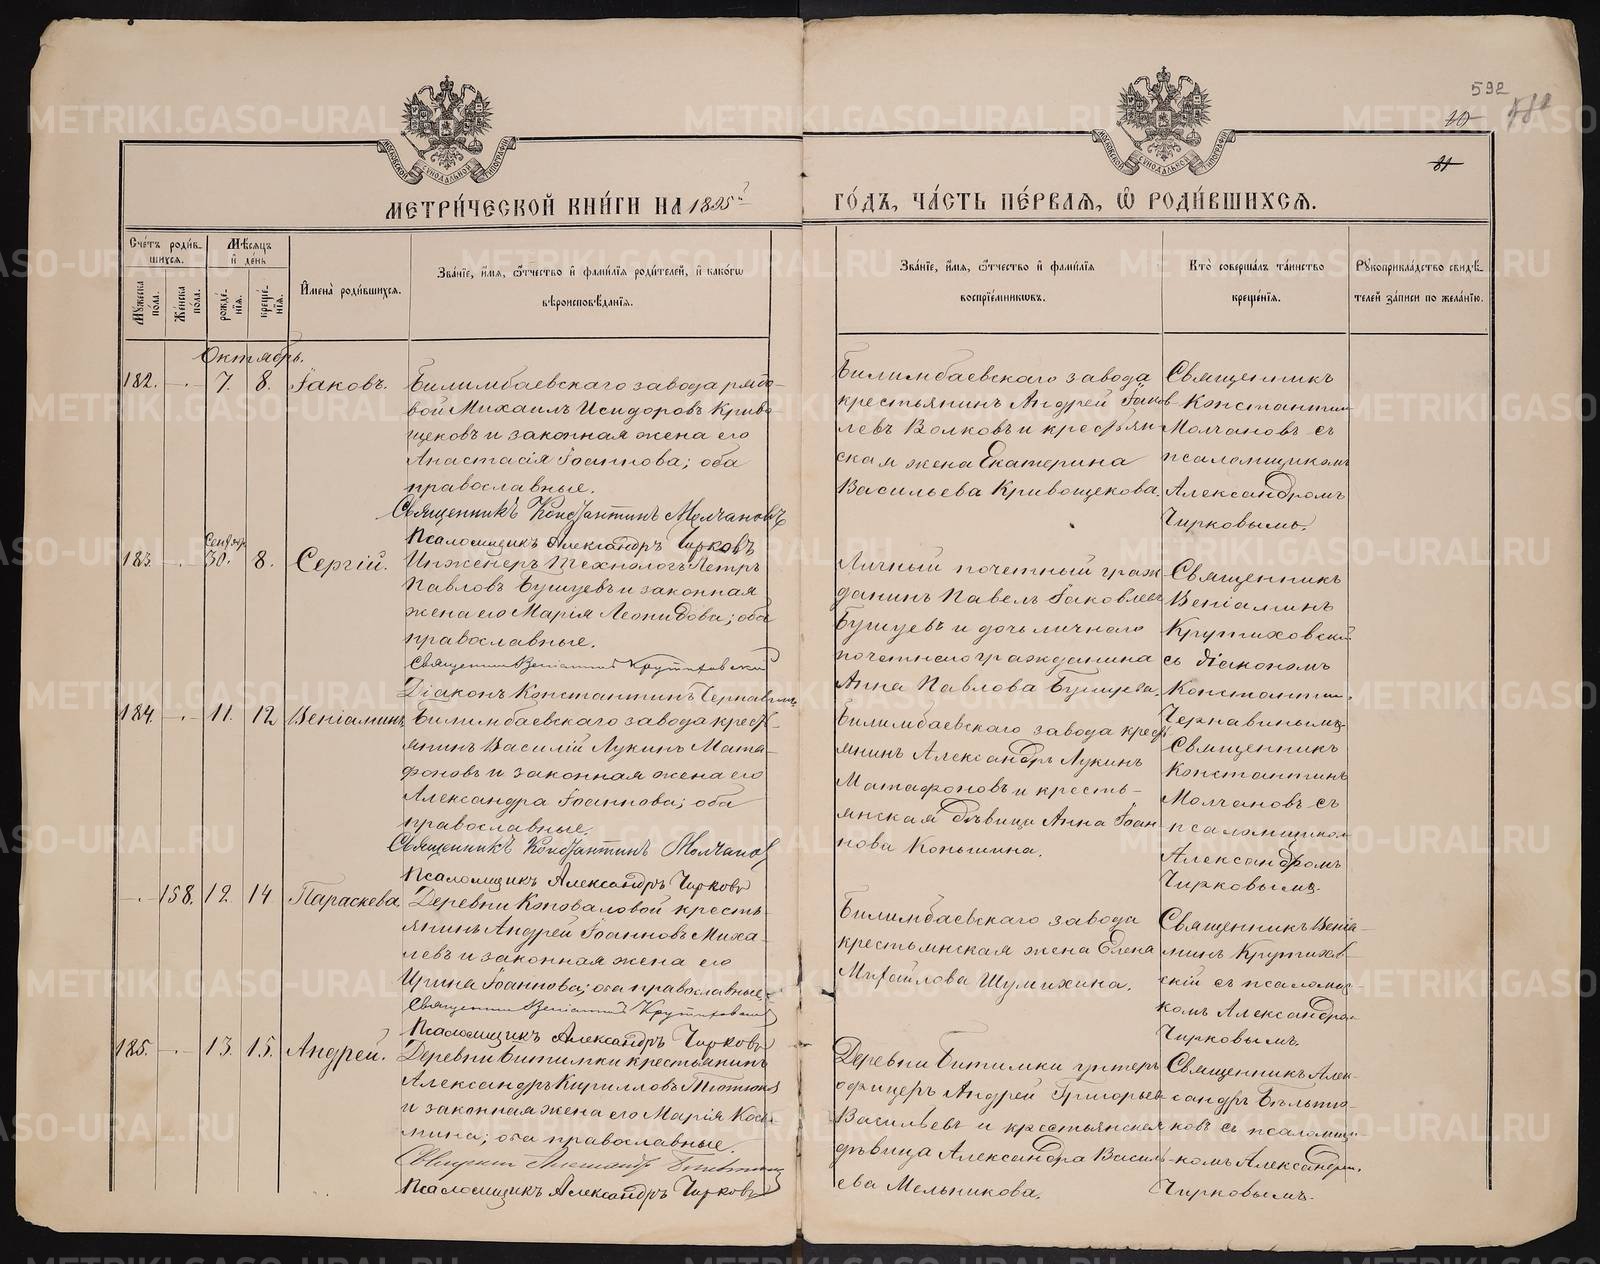 592
10
МЕТРИ́ЧЕСКОЙ КНИ́ГИ НА 1895 ГО́ДЪ, ЧА́СТЬ ПЕ́РВАЯ, Ѡ РОДИ́ВШИХСЯ.
Счетъ родив-
шихся.
Мѣсяцъ
и день
Мужеска
пола.
Женска
пола.
рожде-
нія.
креще-
нія.
Имена родившихся.
Званіе, имя, отчество и фамилія родителей, и какогѡ
вѣроисповѣданія.
Званіе, имя, отчество и фамилія
воспріемниковъ.
Кто совершалъ таинство
крещенія.
Рукоприкладство свидѣ-
телей записи по желанію.
Октябрь.
182. -"- 7. 8. Іаковъ.
Билимбаевскаго завода рядо-
вой Михаилъ Исидоровъ Криво-
щековъ и законная жена его
Анастасія Іоаннова; оба
православные.
Священникъ Константинъ Молчановъ
Псаломщикъ Александръ Чирковъ
Билимбаевскаго завода
крестьянинъ Андрей Іаков
левъ Волковъ и крестьян
ская жена Екатерина
Васильева Кривощекова.
Священникъ
Константин
Молчановъ съ
псаломщикомъ
Александромъ
Чирковымъ.
183. -"- 30. 8. Сергій.
Инженеръ Технологъ Петръ
Павловъ Бушуевъ и законная
жена его Марія Леонидова; оба
православные.
Священникъ Веніаминъ Крутиховскій
Діаконъ Константинъ Чернавинъ
Личный почетный граж-
данинъ Павелъ Іаковлевъ
Бушуевъ и дочь личнаго
почетнаго гражданина
Анна Павлова Бушуева.
Священникъ
Веніаминъ
Крутиховскій
съ діакономъ
Константин.
Чернавинымъ
184. -"- 11. 12 Веніаминъ
Билимбаевскаго завода кресть-
янинъ Василій Лукинъ Мата-
фоновъ и законная жена его
Александра Іоаннова; оба
православные.
Священникъ Константинъ Молчановъ
Псаломщикъ Александръ Чирковъ
Билимбаевскаго завода кресть
янинъ Александръ Лукинъ
Матафоновъ и кресть-
янская дѣвица Анна Іоан-
нова Коньшина.
Священникъ
Константинъ
Молчановъ съ
псаломщиком
Александромъ
Чирковымъ.
-"- 158. 12. 14 Параскева.
Деревни Коноваловой кресть-
янинъ Андрей Іоанновъ Миха-
левъ и законная жена его
Ирина Іоаннова; оба православные.
Священникъ Веніаминъ Крутиховскій
Псаломщикъ Александръ Чирковъ
Билимбаевскаго завода
крестьянская жена Елена
Михайлова Шумихина.
Священникъ Веніа-
минъ Крутихов-
скій съ псаломщи-
комъ Александром
Чирковымъ.
185. -"- 13. 15. Андрей.
Деревни Битимки крестьянинъ
Александръ Кирилловъ
и законная жена его Марія Косъ-
мина; оба православные.
Псаломщикъ Александръ Чирковъ
Деревни Битимки унтеръ
офицеръ Андрей Григорьев
Васильевъ и крестьянская
дѣвица Александра Василь-
ева Мельникова.
Священникъ Алек-
сандръ Бѣльтю-
ковъ съ псаломщи-
комъ Александром.
Чирковымъ.